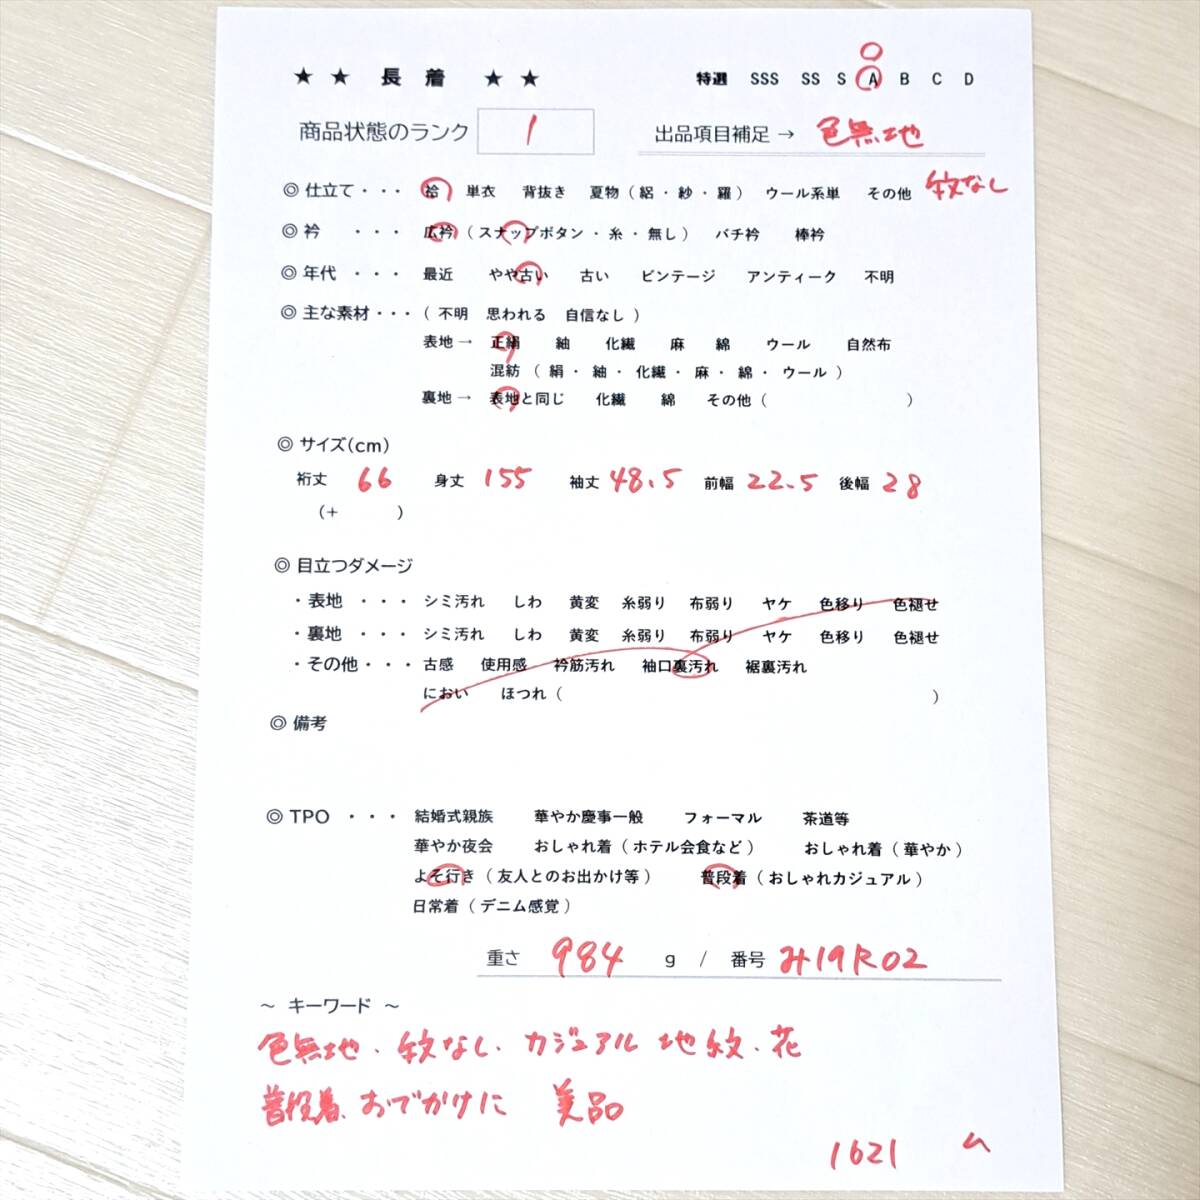 ★ ★ 長 着 ★ ★ 特選 SSS SS S A B C D
商品状態のランク 1 出品項目補足 → 色無地
◎ 仕立て ・・・ 袷 単衣 背抜き 夏物 ( 絽 ・ 紗 ・ 羅 ) ウール系単 その他 紋なし
◎ 衿 ・・・ 広衿 ( スナップボタン ・ 糸 ・ 無し ) バチ衿 棒衿
◎ 年代 ・・・ 最近 やや古い 古い ビンテージ アンティーク 不明
◎ 主な素材 ・・・ ( 不明 思われる 自信なし )
表地 → 正絹 紬 化繊 麻 綿 ウール 自然布
混紡 ( 絹 ・ 紬 ・ 化繊 ・ 麻 ・ 綿 ・ ウール )
裏地 → 表地と同じ 化繊 綿 その他 ( )
◎ サイズ(cm)
裄丈 66 身丈 155 袖丈 48.5 前幅 22.5 後幅 28
(+ )
◎ 目立つダメージ
・ 表地 ・・・ シミ汚れ しわ 黄変 糸弱り 布弱り ヤケ 色移り 色褪せ
・ 裏地 ・・・ シミ汚れ しわ 黄変 糸弱り 布弱り ヤケ 色移り 色褪せ
・ その他 ・・・ 古感 使用感 衿筋汚れ 袖口裏汚れ 裾裏汚れ
におい ほつれ ( )
◎ 備考
◎ TPO ・・・ 結婚式親族 華やか慶事一般 フォーマル 茶道等
華やか夜会 おしゃれ着 ( ホテル会食など ) おしゃれ着 ( 華やか )
よそ行き ( 友人とのお出かけ等 ) 普段着 ( おしゃれカジュアル )
日常着 ( デニム感覚 )
重さ 984 g / 番号 み19R02
~ キーワード ~
色無地、紋なし、カジュアル 地紋、花
普段着、おでかけに 美品
1621 ム